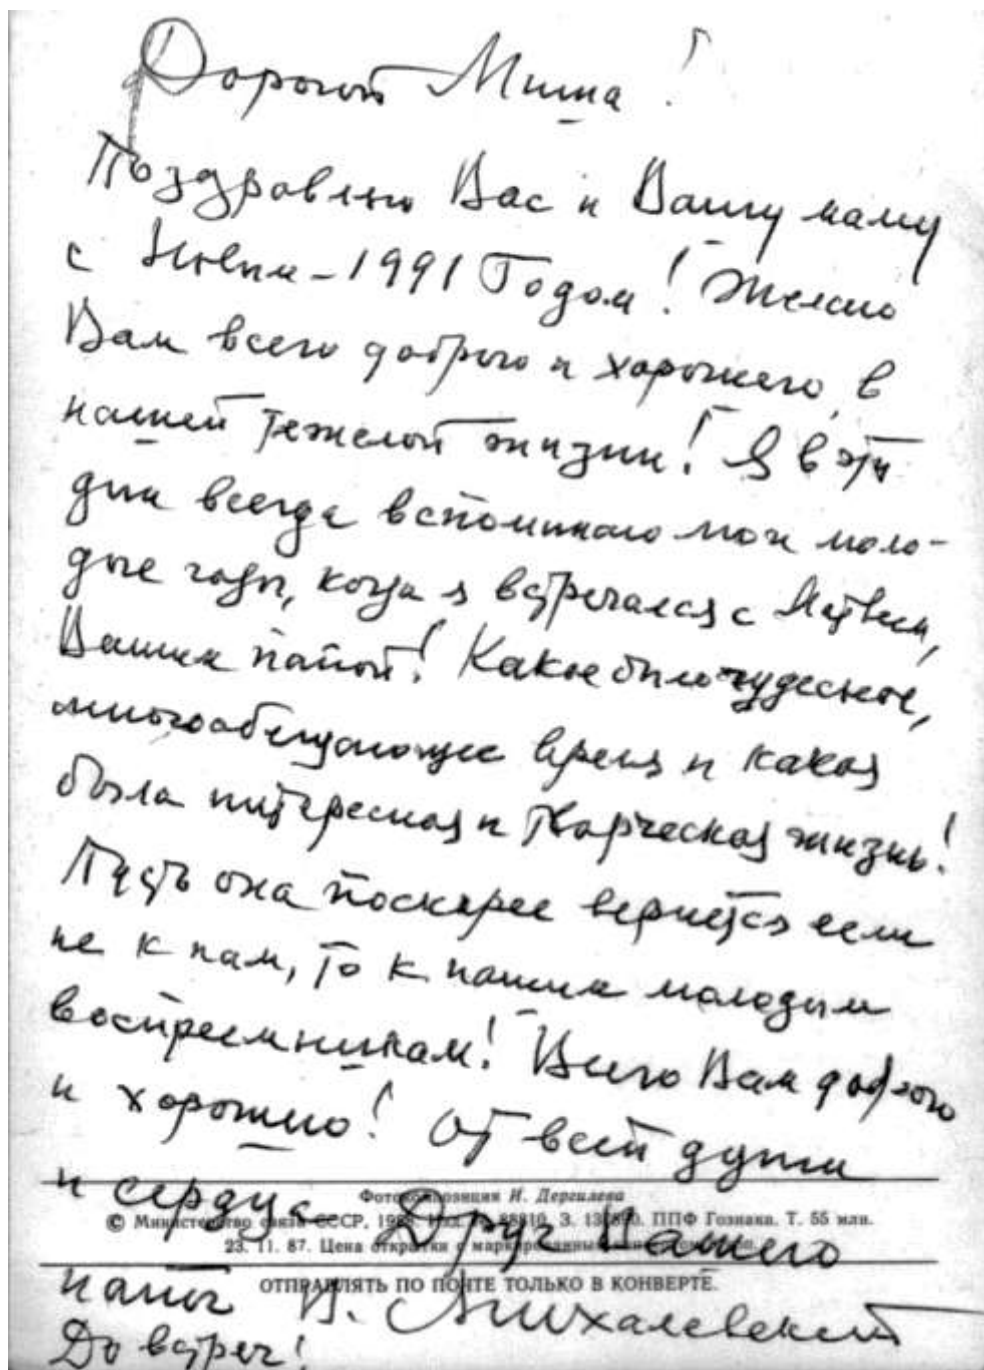 Дорогой Миша!
Поздравляю Вас и Вашу маму
с Новым - 1991 Годом! Желаю
Вам всего доброго и хорошего, в
нашей тяжелой жизни! Я в эти
дни всегда вспоминаю мои моло-
дые годы, когда я встречался с Матвеем,
Вашим папой! Какое было чудесное,
многообещающее время и какая
была интересная и творческая жизнь!
Пусть она поскорее вернется если
не к нам, то к нашим молодым
восприемникам! Всего Вам доброго
и хорошего! От всей души
и сердца Друг Вашего
Фотокомпозиция И. Дергилева
© Министерство связи СССР, З. ППФ Гознака. Т. 55 млн.
23. 11. 87. Цена открытки с маркированным
ОТПРАВЛЯТЬ ПО ПОЧТЕ ТОЛЬКО В КОНВЕРТЕ.
папы В. Михалевский
До встреч!